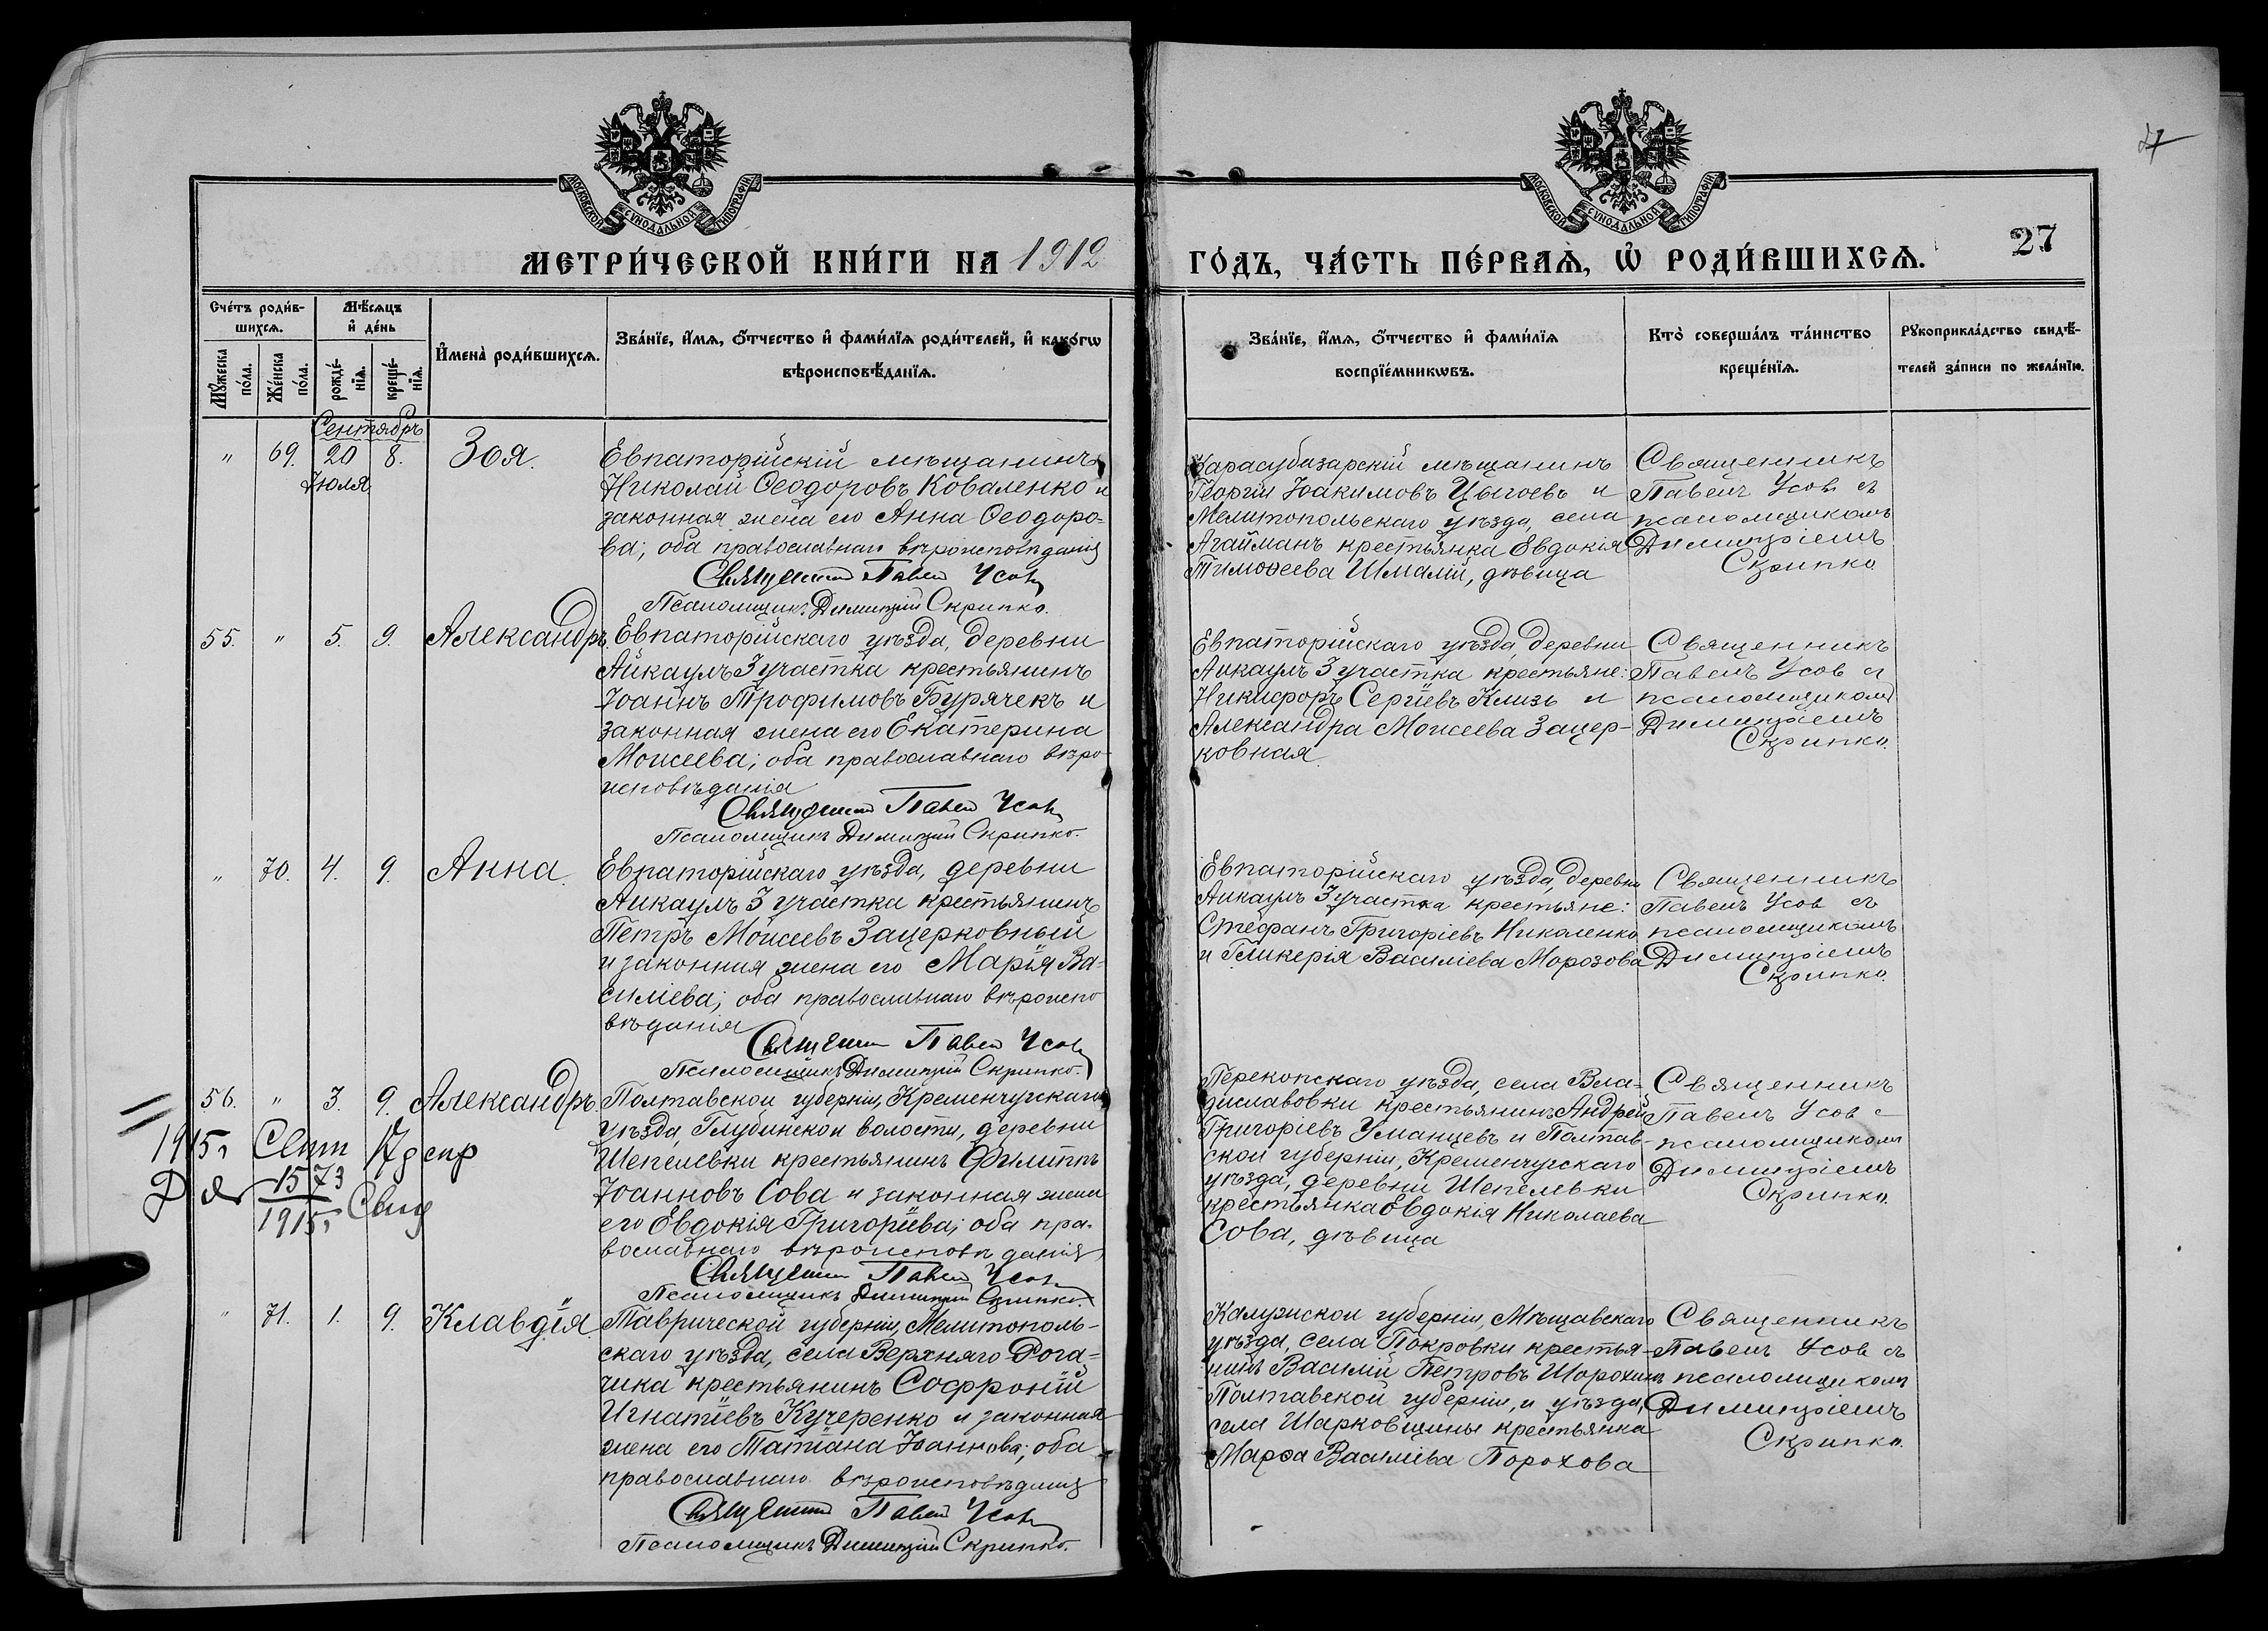 МОСКОВСКОЙ СѴНОДАЛЬНОЙ ТИПОГРАФІИ
МОСКОВСКОЙ СѴНОДАЛЬНОЙ ТИПОГРАФІИ
27
МЕТРИ́ЧЕСКОЙ КНИ́ГИ НА 1912
ГО́ДЪ, ЧА́СТЬ ПЕ́РВАѦ, Ѽ РОДИ́ВШИХСѦ.
27
Сче́тъ роди́в-
шихсѧ.
Мꙋ́жеска по́ла.
Же́нска по́ла.
Мѣ́сѧцъ
и҆ де́нь
рожде́-
нїѧ.
креще́-
нїѧ.
И҆мена̀ роди́вшихсѧ.
Зва́нїе, и҆́мѧ, ѻ҆́тчество и҆ фами́лїѧ роди́телей, и҆ како́гѡ
вѣроисповѣ́данїѧ.
Зва́нїе, и҆́мѧ, ѻ҆́тчество и҆ фами́лїѧ
воспрїе́мникѡвъ.
Кто̀ соверша́лъ та́инство
креще́нїѧ.
Рꙋкоприкла́дство свидѣ́-
телей за́писи по жела́нїю.
Сентябрь
" 69. 20 8. Зоя.
Іюля
Евпаторійскій мѣщанинъ
Николай Ѳеодоровъ Коваленко и
законная жена его Анна Ѳеодоро=
ва; оба православнаго вѣроисповѣданія
Священникъ Павелъ Усовъ
Псаломщикъ Димитрій Скрипко.
Карасубазарскій мѣщанинъ
Георгій Іоакимовъ Цыгоевъ и
Мелитопольскаго уѣзда, села
Агайманъ крестьянка Евдокія
Тимоѳеева Шмалій, дѣвица
Священникъ
Павелъ Усовъ съ
псаломщикомъ
Димитріемъ
Скрипко
55. " 5. 9. Александръ.
Евпаторійскаго уѣзда, деревни
Айкаулъ 3 участка крестьянинъ
Іоаннъ Трофимовъ Бурячекъ и
законная жена его Екатерина
Моисеева; оба православнаго вѣро
исповѣданія
Священникъ Павелъ Усовъ
Псаломщикъ Димитрій Скрипко.
Евпаторійскаго уѣзда, деревни
Айкаулъ 3 участка крестьяне:
Никифоръ Сергіевъ Клизь и
Александра Моисеева Зацер-
ковная
Священникъ
Павелъ Усовъ съ
псаломщикомъ
Димитріемъ
Скрипко.
" 70. 4. 9. Анна.
Евпаторійскаго уѣзда, деревни
Айкаулъ 3 участка крестьянинъ
Петръ Моисеевъ Зацерковный
и законная жена его Марія Ва-
силіева; оба православнаго вѣроиспо
вѣданія
Священникъ Павелъ Усовъ
Псаломщикъ Димитрій Скрипко.
Евпаторійскаго уѣзда, деревни
Айкаулъ 3 участка крестьяне:
Стефанъ Григоріевъ Николенко
и Гликерія Василіева Морозова
Священникъ
Павелъ Усовъ съ
псаломщикомъ
Димитріемъ
Скрипко.
56. " 3. 9. Александръ.
1915г Сент 17
1573
1915г
Полтавской губерніи, Кременчугскаго
уѣзда, Глубинской волости, деревни
Шепелевки крестьянинъ Филиппъ
Іоанновъ Сова и законная жена
его Евдокія Григоріева; оба пра-
вославнаго вѣроисповѣданія
Священникъ Павелъ Усовъ
Псаломщикъ Димитрій Скрипко.
Перекопскаго уѣзда, села Вла-
диславовки крестьянинъ Андрей
Григоріевъ Уманцевъ и Полтав-
ской губерніи, Кременчугскаго
уѣзда, деревни Шепелевки
крестьянка Евдокія Николаева
Сова, дѣвица
Священникъ
Павелъ Усовъ съ
псаломщикомъ
Димитріемъ
Скрипко.
" 71. 1. 9. Клавдія.
Таврической губерніи, Мелитополь-
скаго уѣзда, села Верхняго Рога=
чика крестьянинъ Софроній
Игнатіевъ Кучеренко и законная
жена его Татіана Іоаннова; оба
православнаго вѣроисповѣданія
Священникъ Павелъ Усовъ
Псаломщикъ Димитрій Скрипко.
Калужской губерніи, Мѣщавскаго
уѣзда, села Покровки крестья-
нинъ Василій Петровъ Шорохинъ
Полтавской губерніи, и уѣзда,
села Шарковщины крестьянка
Марѳа Василіева Порохова
Священникъ
Павелъ Усовъ съ
псаломщикомъ
Димитріемъ
Скрипко.